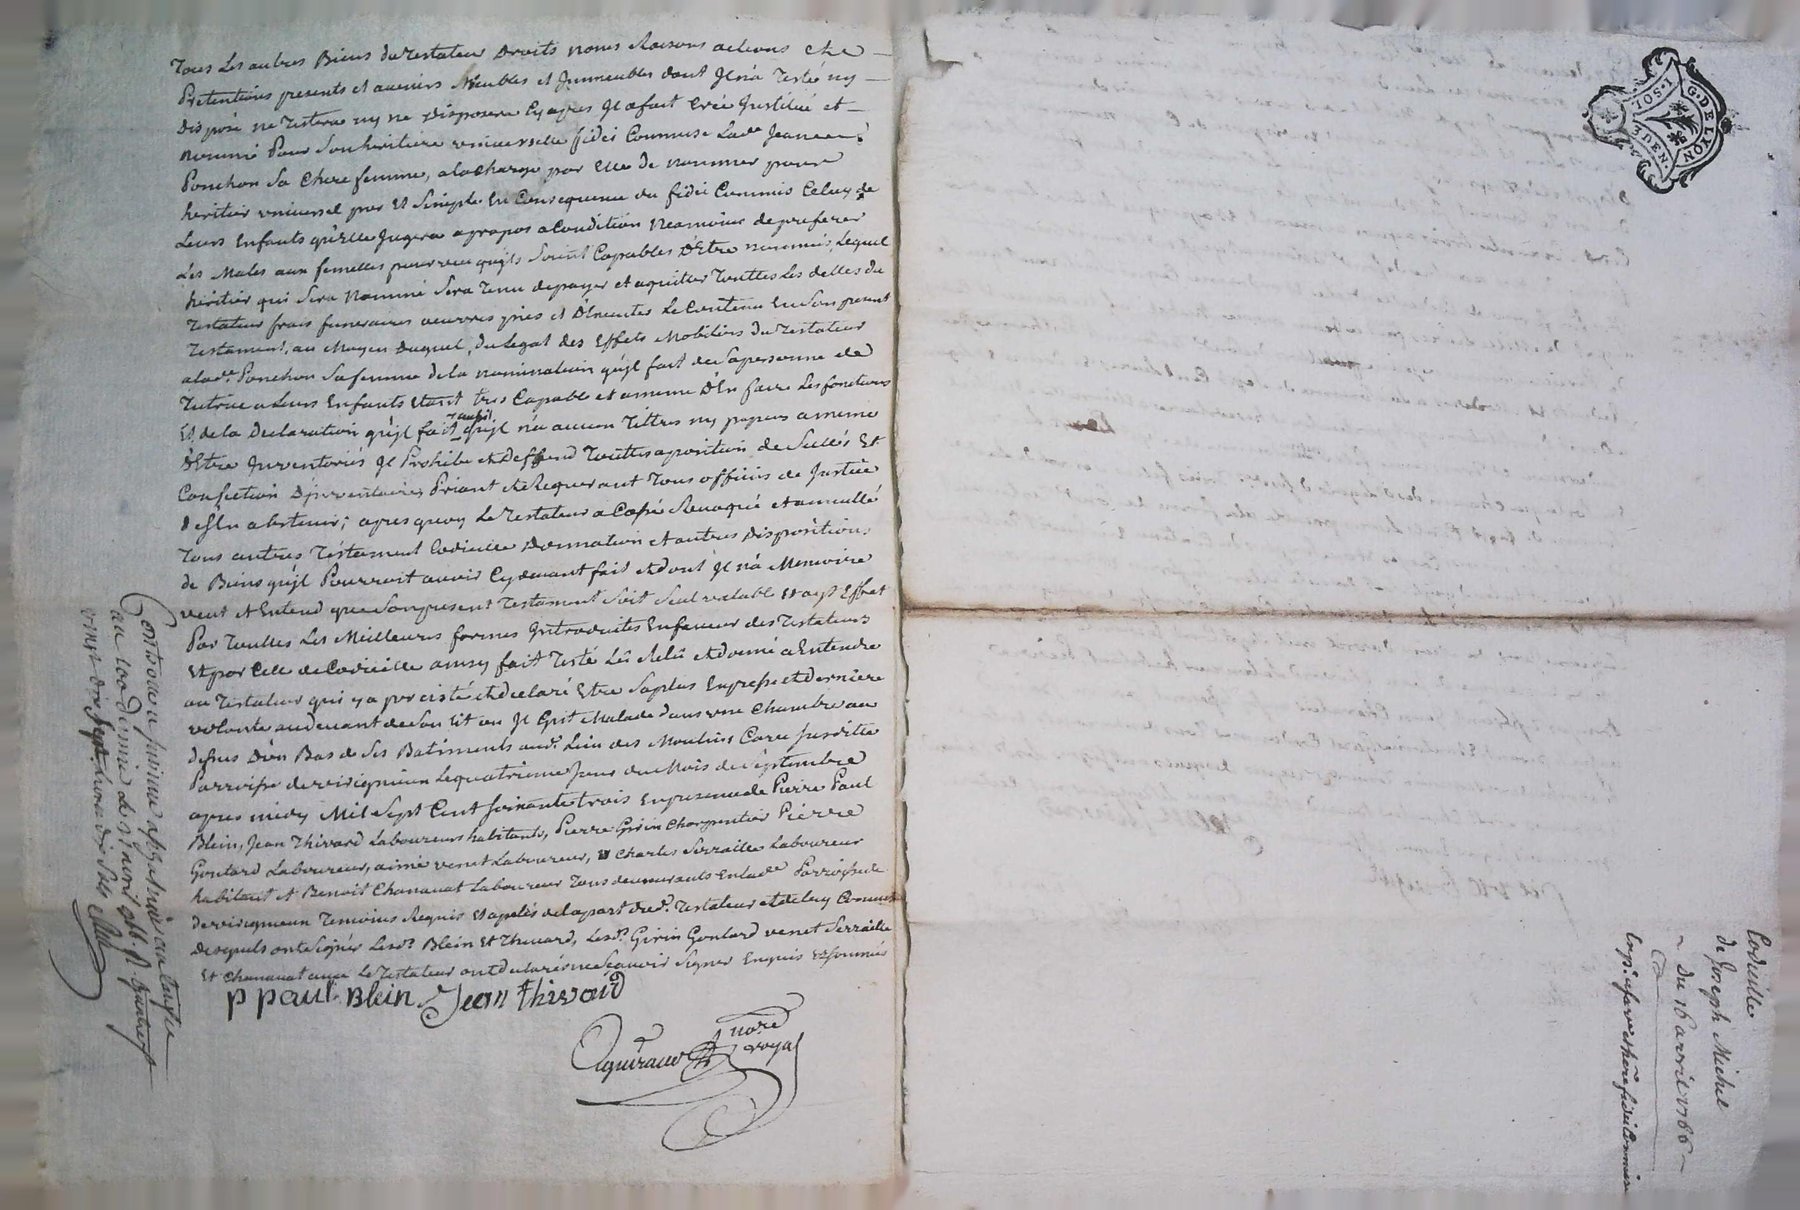 Tous Les autres Biens du testateur Droits noms Raisons actions et
Pretentions presents et avenirs Meubles et Jmmeubles dont Jl n'a Testé ny
Disposé ne Testera ny ne Disposera Cy apres Jl a fait Créé Jnstitué et
nommé Pour Son heritiere universelle fidei Commise Lade Jeanne
Ponchon Sa Chere femme, a la Charge par Elle de nommer pour
heritier universel pur et Simple En Consequence du fidei Commis Celuy de
Leurs Enfants qu'Elle Jugera apropos a Condition Neamoins de preferer
Les Males aux femelles pourveu qu'ils Soient Capables D'Etre nommés, Lequel
heritier qui Sera Nommé Sera Tenu de payer et aquitter Touttes Les dettes du
Testateur frais funeraires oeuvres pies et D'Executer Le Contenu En Son present
Testament, au Moyen Duquel, du Legat des Effets Mobiliers du Testateur
a lade Ponchon Sa femme de la nomination qu'jl fait de Sa personne de
Tutrice a Leurs Enfants Etant tres Capable et a meme D'En faire Les fonctions
Et de la Declaration qu'jl fait qu'jl n'a aucun Tiltres ny papiers a meme
D'Etre Jnventoriés Jl Prohibe et Deffend Touttes aposition de Scellés Et
Confection D'jnventaires Priant et Requerant Tous officiers de Justice
de S'En abstenir; apres quoy Le Testateur a Cassé Revoqué et annullé
Tous autres Testament Codicille Donnation et autres Dispositions
de Biens qu'jl Pourroit avoir Cy devant fait et dont Jl n'a Memoire
veut et Entend que Son present Testament Soit Seul valable et ayt Effet
Par Touttes Les Meilleures formes Jntroduites En faveur des Testateurs
Et par Celle de Codicille ainsy fait Testé Lû Relû et donné a Entendre
au Testateur qui y a percisté et declaré Etre Sa plus Expresse et derniere
volonté au devant de Son Lit ou Jl Gist Malade dans une Chambre au
dessus D'Un Bas de Ses Batiments aud. Lieu des Moulins
Parroisse de viricigneux Le quatrieme jour du Mois de Septembre
apres midy Mil Sept Cent Soixante trois En presence de Pierre Paul
Blein, Jean Thivard Laboureurs habitants, Pierre Girin Charpentier Pierre
Goutard Laboureur, aimé venet Laboureur, Charles Serraille Laboureur
habitant et Benoit Chanavat Laboureur Tous demeurants En lade Parroisse
de viricigneux Temoins Requis et apelés de la part dud. Testateur et de luy Connus
desquels ont Signés Lesd. Blein Et Thivard, Lesd. Girin Goutard venet Serraille
Et Chanavat avec Le Testateur ont declarés ne Sçavoir Signer Enquis et Sommés
p paul Blein Jean thivard
nore
royal
vingt
G. DE LYON
10S. 1
DEN
Codicille
de Joseph Michel
du 16 avril 1766